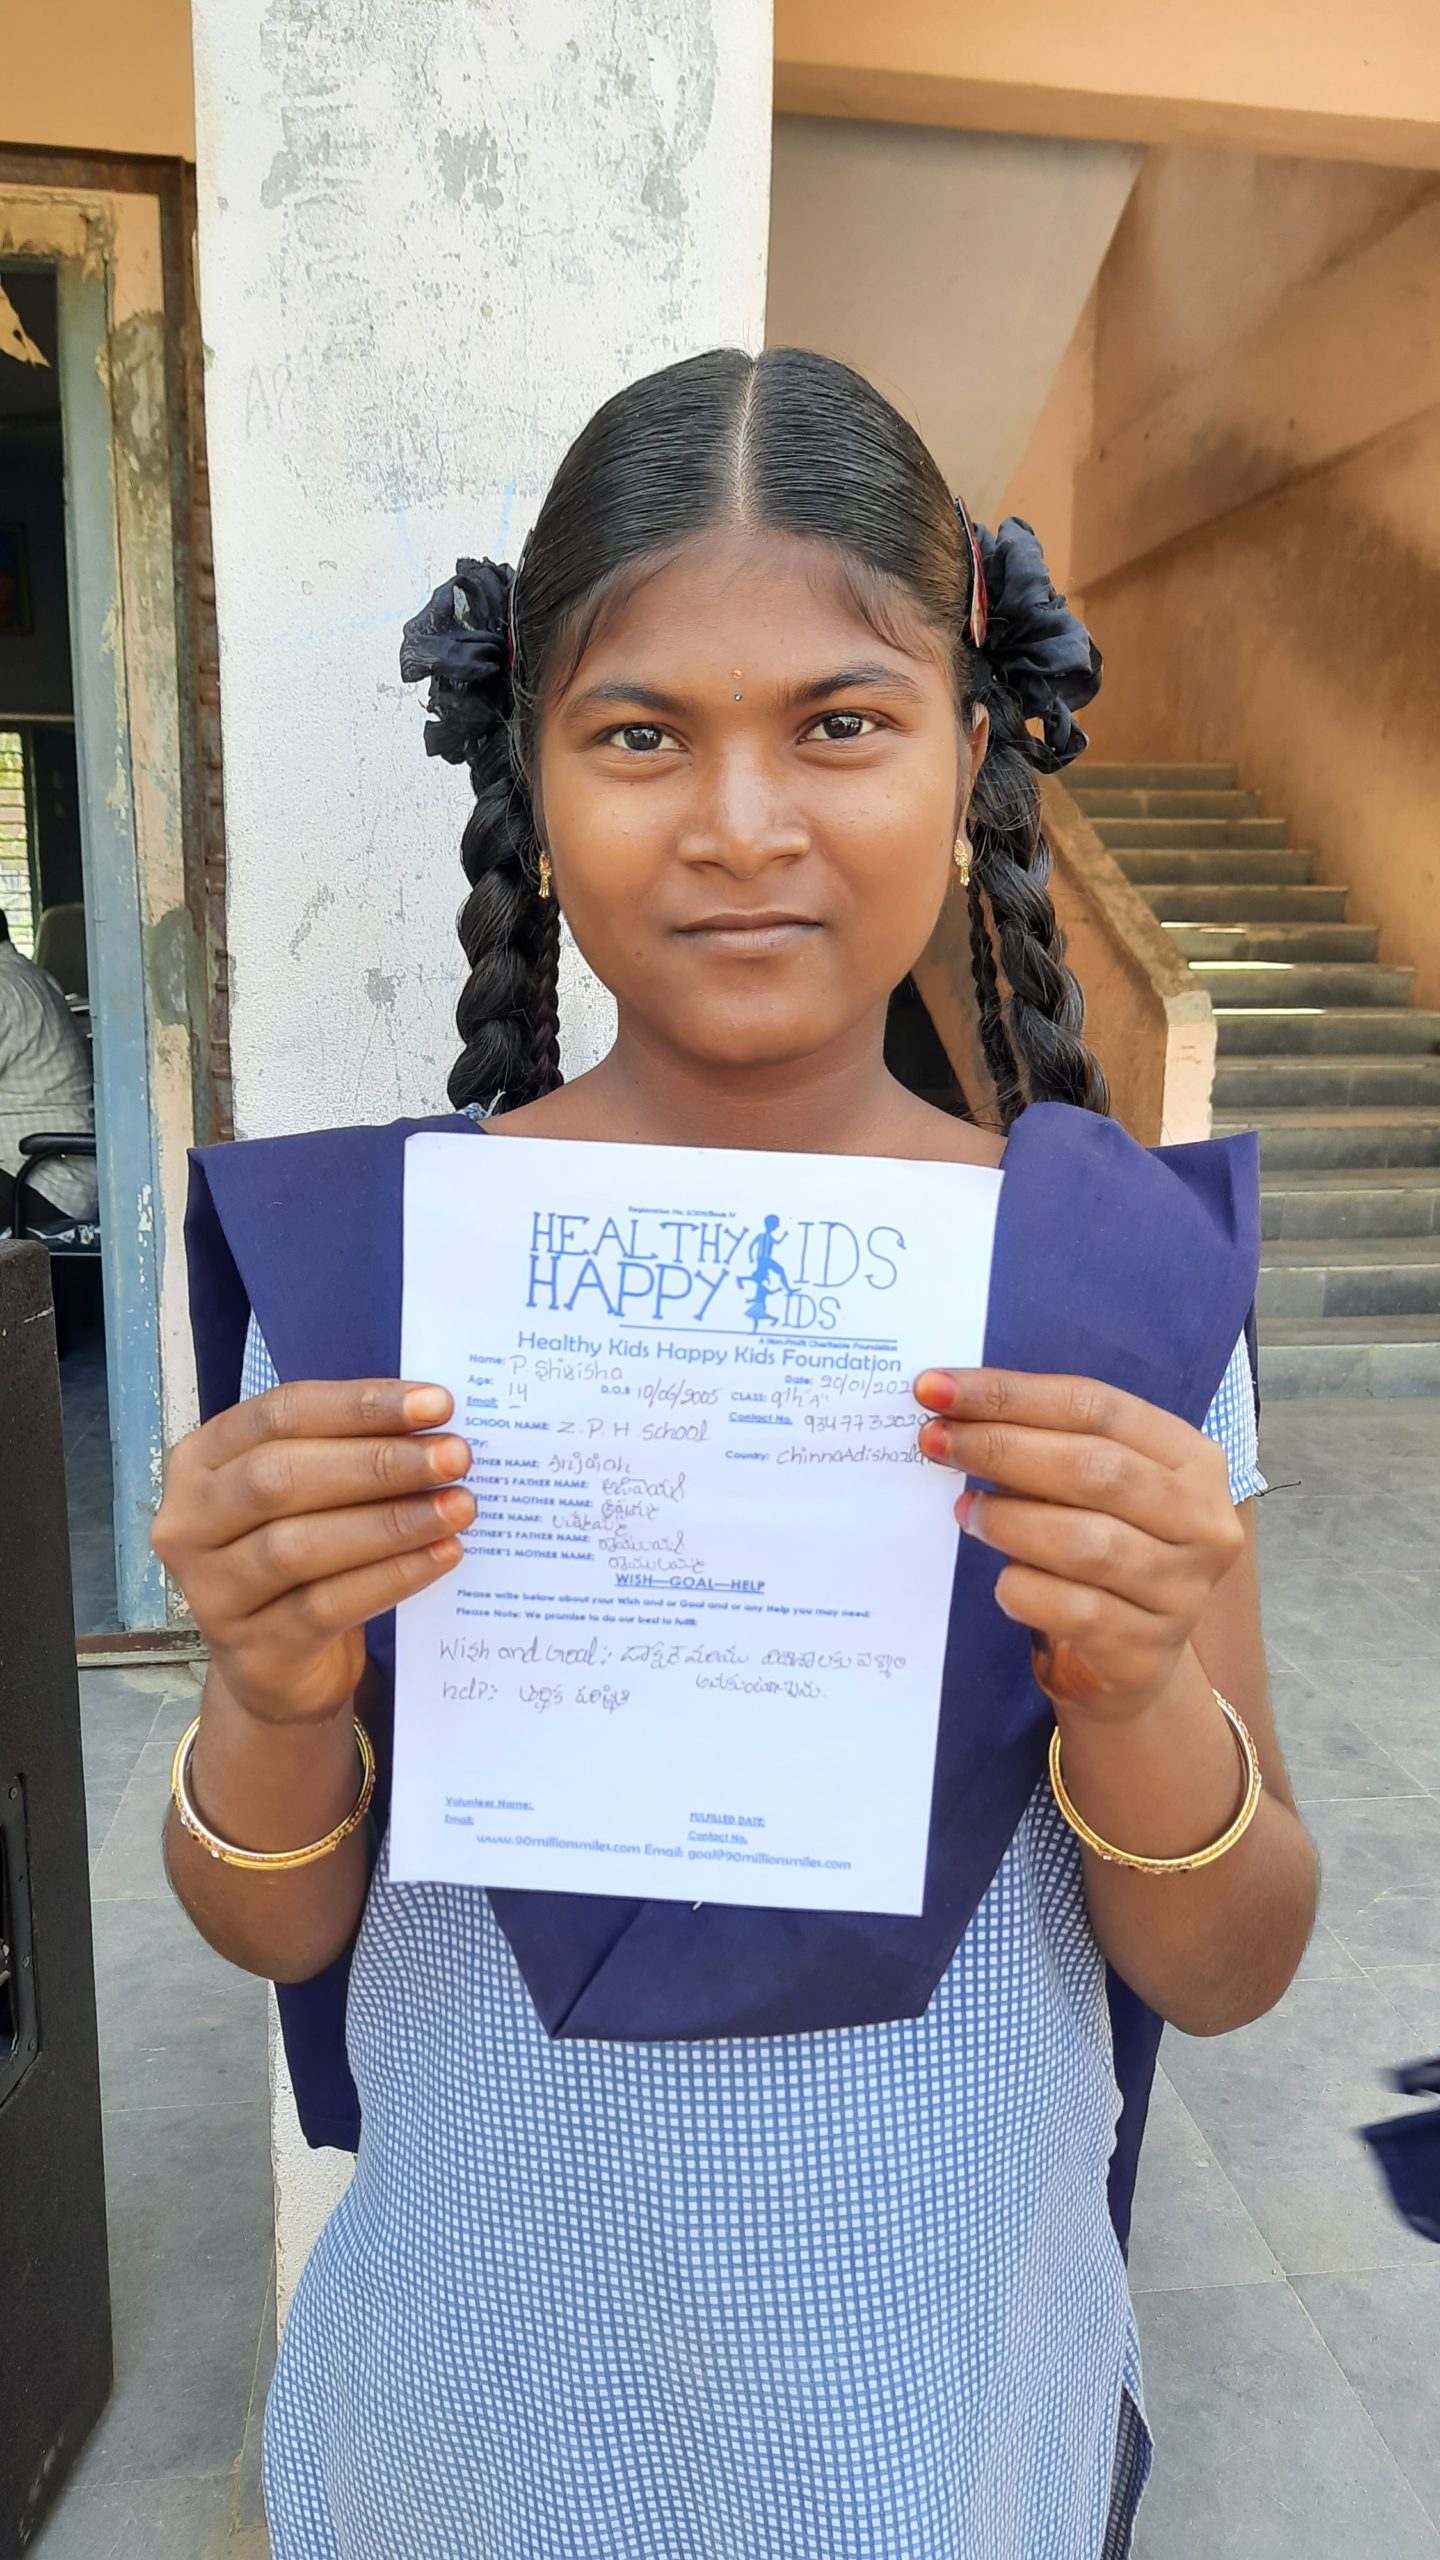 Registration No. 5/2011/Book IV
HEALTHY KIDS
HAPPY KIDS
A Non-Profit Charitable Foundation
Healthy Kids Happy Kids Foundation
Name: P. Shirisha
Date: 20/01/202
Age: 14 D.O.B 10/06/2005 CLASS: 9th "A"
Email: —
SCHOOL NAME: Z. P. H. School Contact No. 9347732020
City: Country:
ATHER NAME: Anjaiah
FATHER'S FATHER NAME:
THER'S MOTHER NAME:
OTHER NAME:
MOTHER'S FATHER NAME:
MOTHER'S MOTHER NAME:
WISH—GOAL—HELP
Please write below about your Wish and or Goal and or any Help you may need:
Please Note: We promise to do our best to fulfill:
Wish and Goal: డాక్టర్ మరియు విదేశాలకు వెళ్ళాలి
అనుకుంటున్నాను.
help: ఆర్థిక పరిస్థితి
Volunteer Name: FULFILLED DATE:
Email: Contact No.
www.90millionsmiles.com Email: goal@90millionsmiles.com